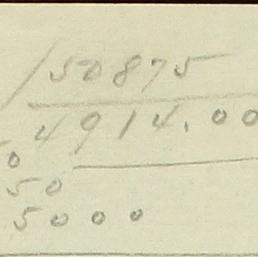 /50875
4914.00
50
50
5000